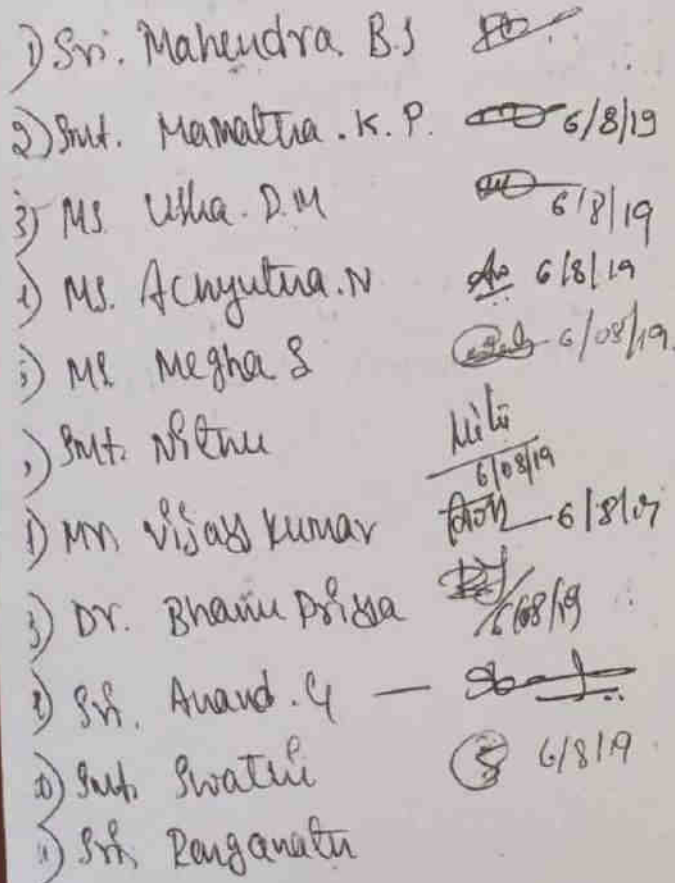 1) Sri. Mahendra. B.S
2) Smt. Mamatha. K. P. 6/8/19
3) Ms. Usha. D.M 6/8/19
4) Ms. Achyutha. N 6/8/19
5) Ms. Megha S 6/08/19.
) Smt. Nithu 6/08/19
) Mr. Vijay Kumar 6/8/19
) Dr. Bhanu Priya 6/08/19
) Sri. Anand. G —
10) Smt. Swathi 6/8/19
11) Sri. Ranganath